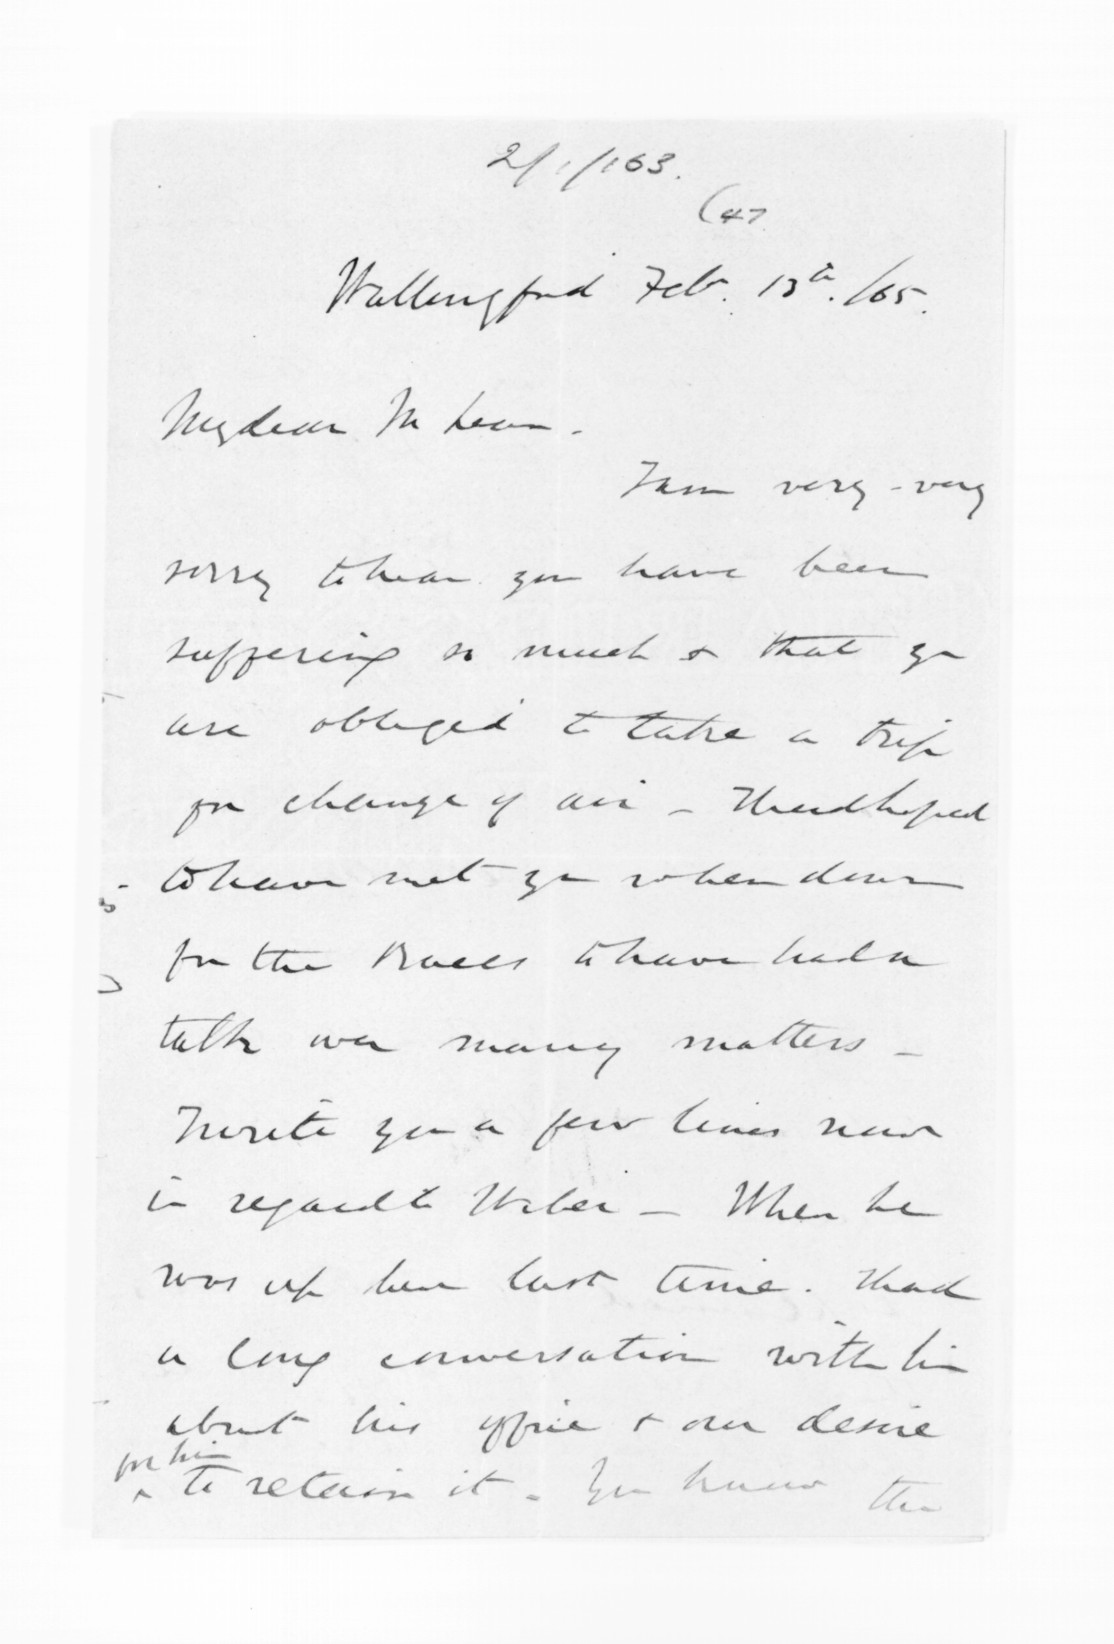 2/1/163.
(47
Wallingford Feb. 13th. /65.
My dear McLean -
I am very - very
sorry to hear you have been
suffering so much & that you
are obliged to take a trip
for change of air - I had hoped
to have met you when down
for the Races to have had a
talk over many matters -
I write you a few lines now
in regard to Weber - When he
was up here last time. I had
a long conversation with him
about his office & our desire
for him
to retain it - You know the